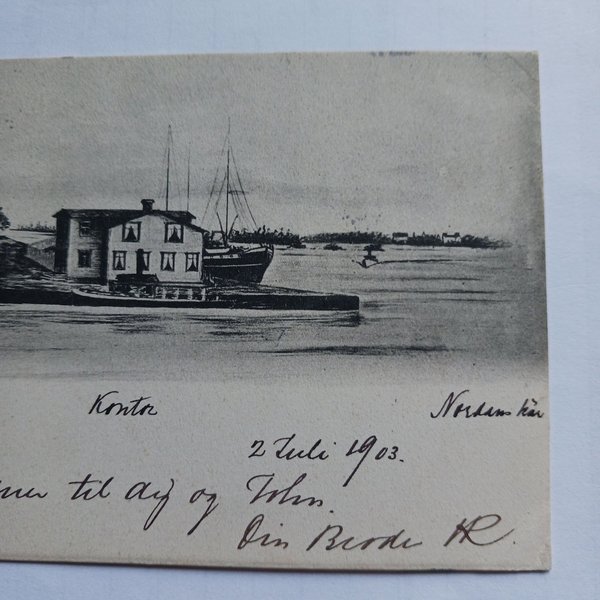 Kontor
Nordanskär
2 Juli 1903.
til dig og John.
Din Brode HR.